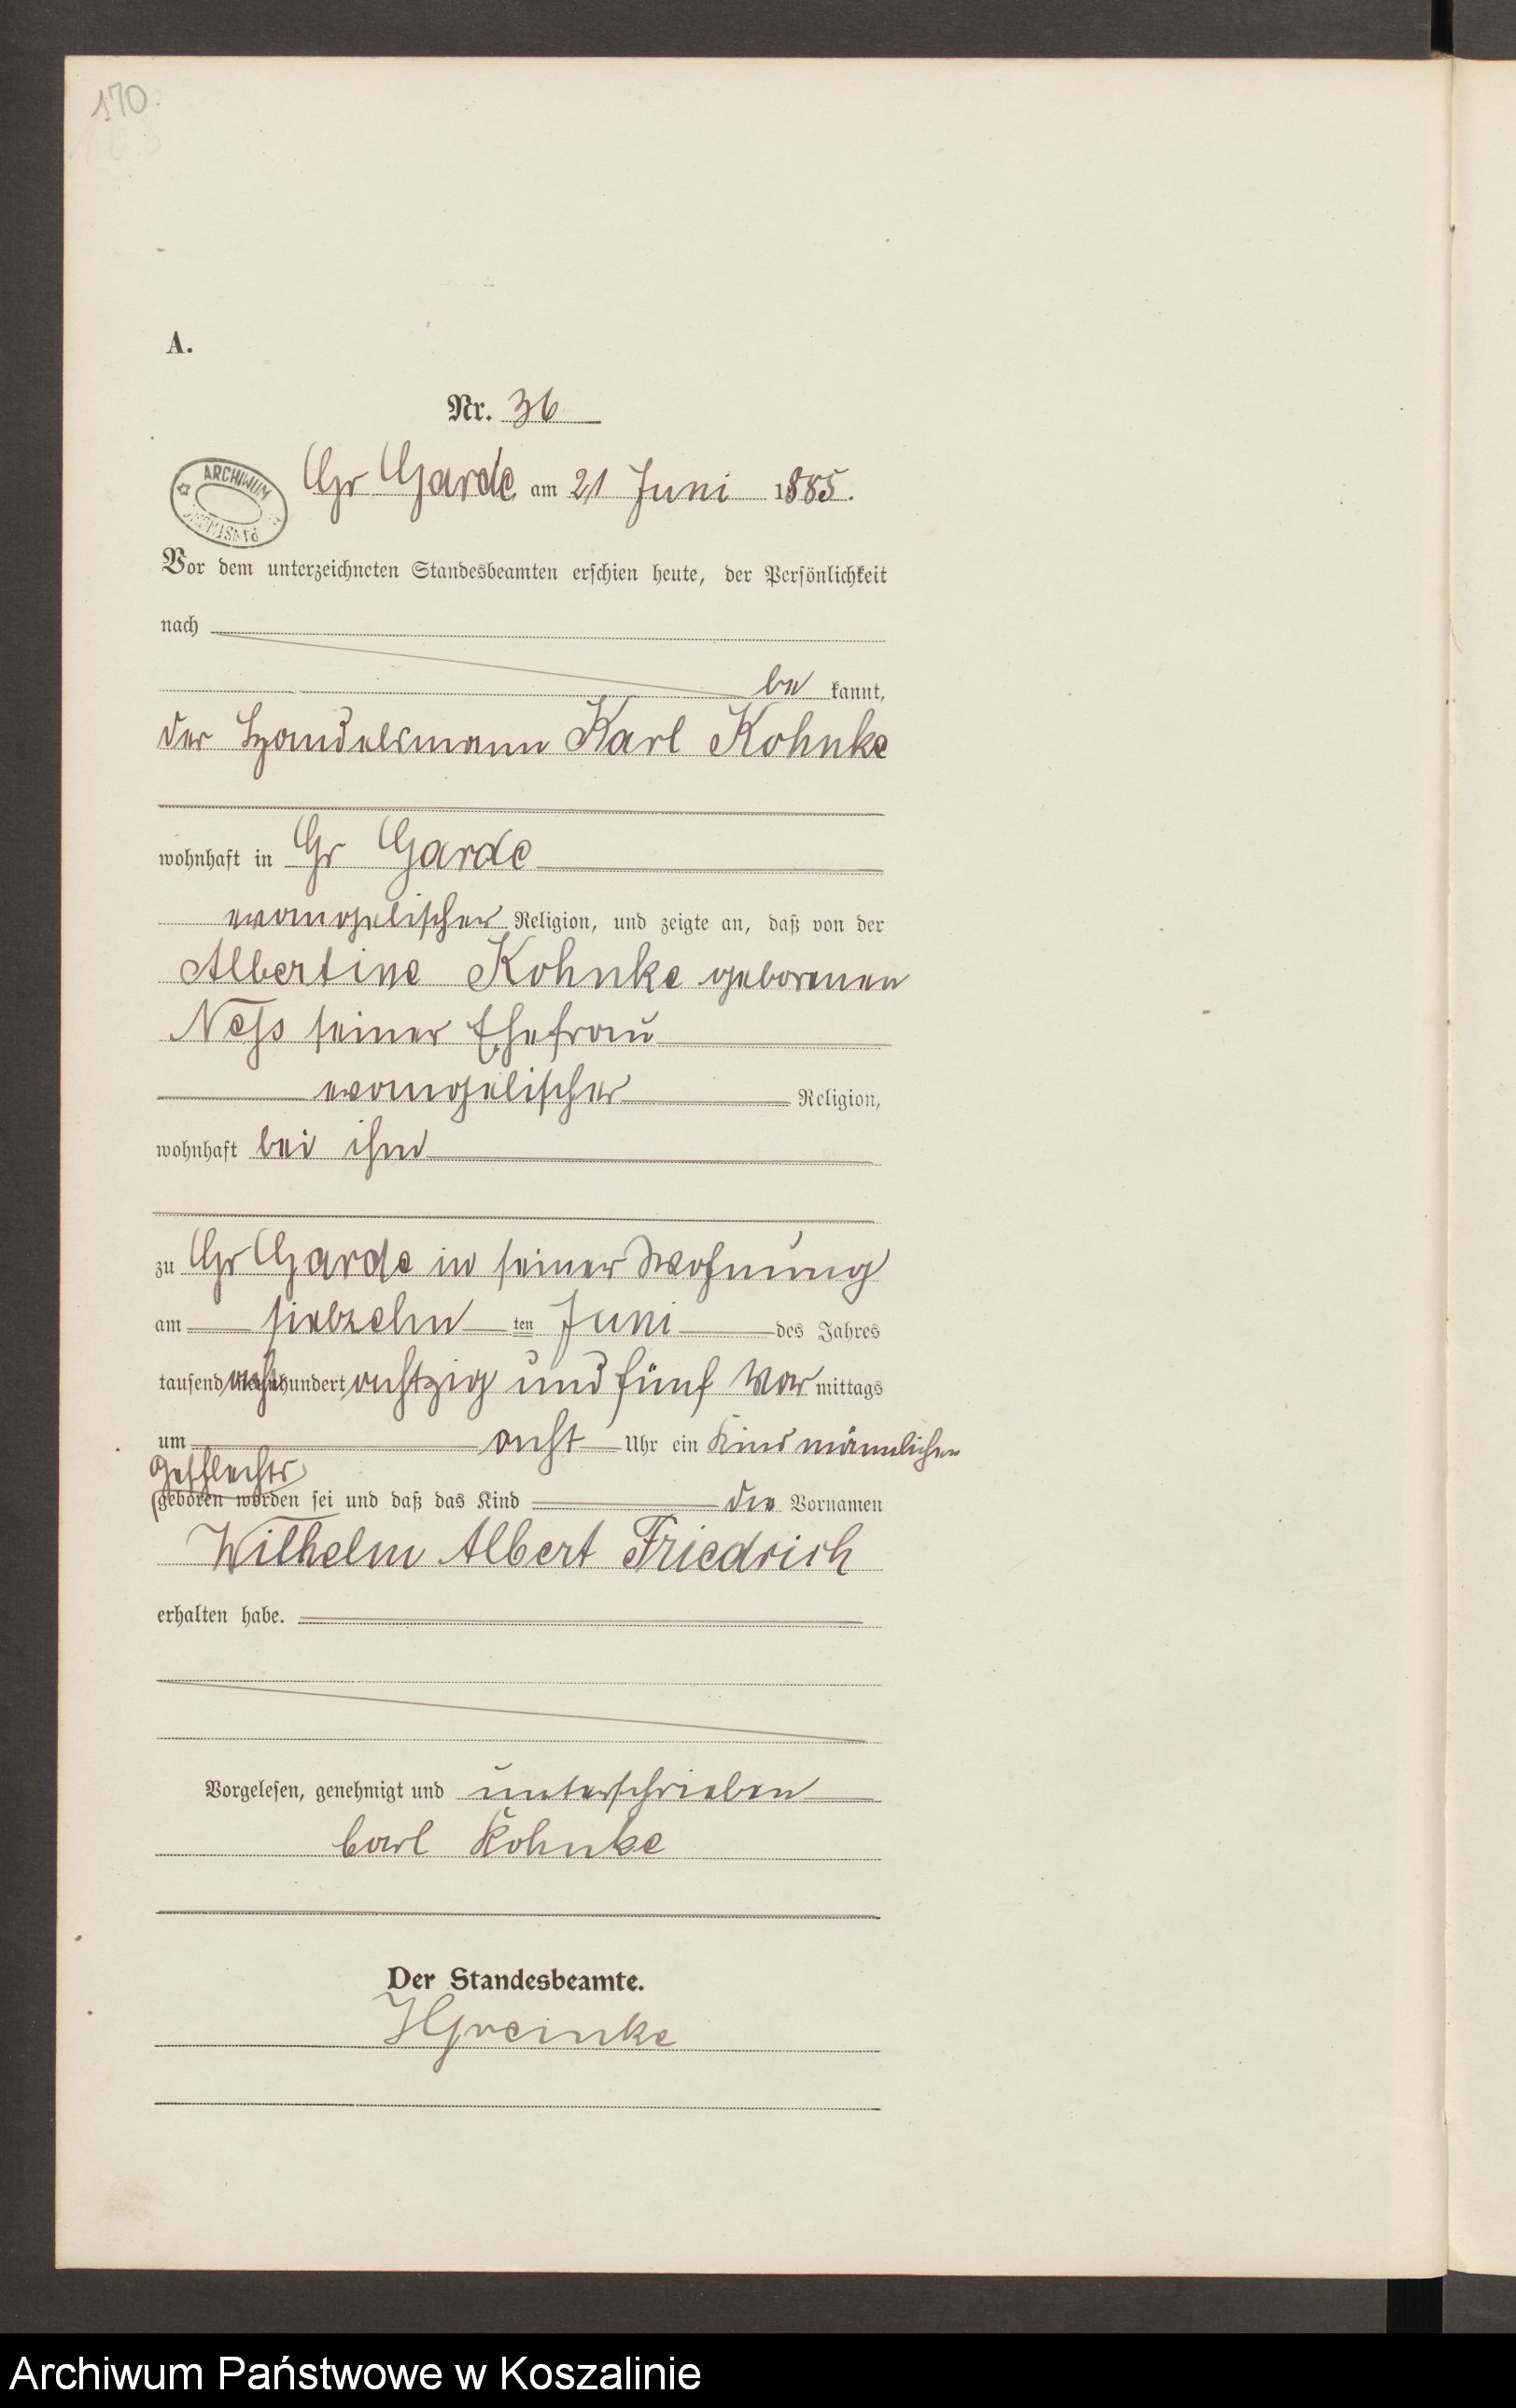 170.
A.
Nr. 36
ARCHIWUM
Gr Garde am 21 Juni 1885.
Vor dem unterzeichneten Standesbeamten erschien heute, der Persönlichkeit
nach
be kannt,
der Handelsmann Karl Kohnke
wohnhaft in Gr Garde
evangelischer Religion, und zeigte an, daß von der
Albertine Kohnke geborenen
Ness seiner Ehefrau
evangelischer Religion,
wohnhaft bei ihm
zu Gr Garde in seiner Wohnung
am siebzehn ten Juni des Jahres
tausend acht hundert achtzig und fünf Vor mittags
um acht Uhr ein Kind männlichen
Geschlechts
geboren worden sei und daß das Kind die Vornamen
Wilhelm Albert Friedrich
erhalten habe.
Vorgelesen, genehmigt und unterschrieben
Carl Kohnke
Der Standesbeamte.
HGreinke
Archiwum Państwowe w Koszalinie